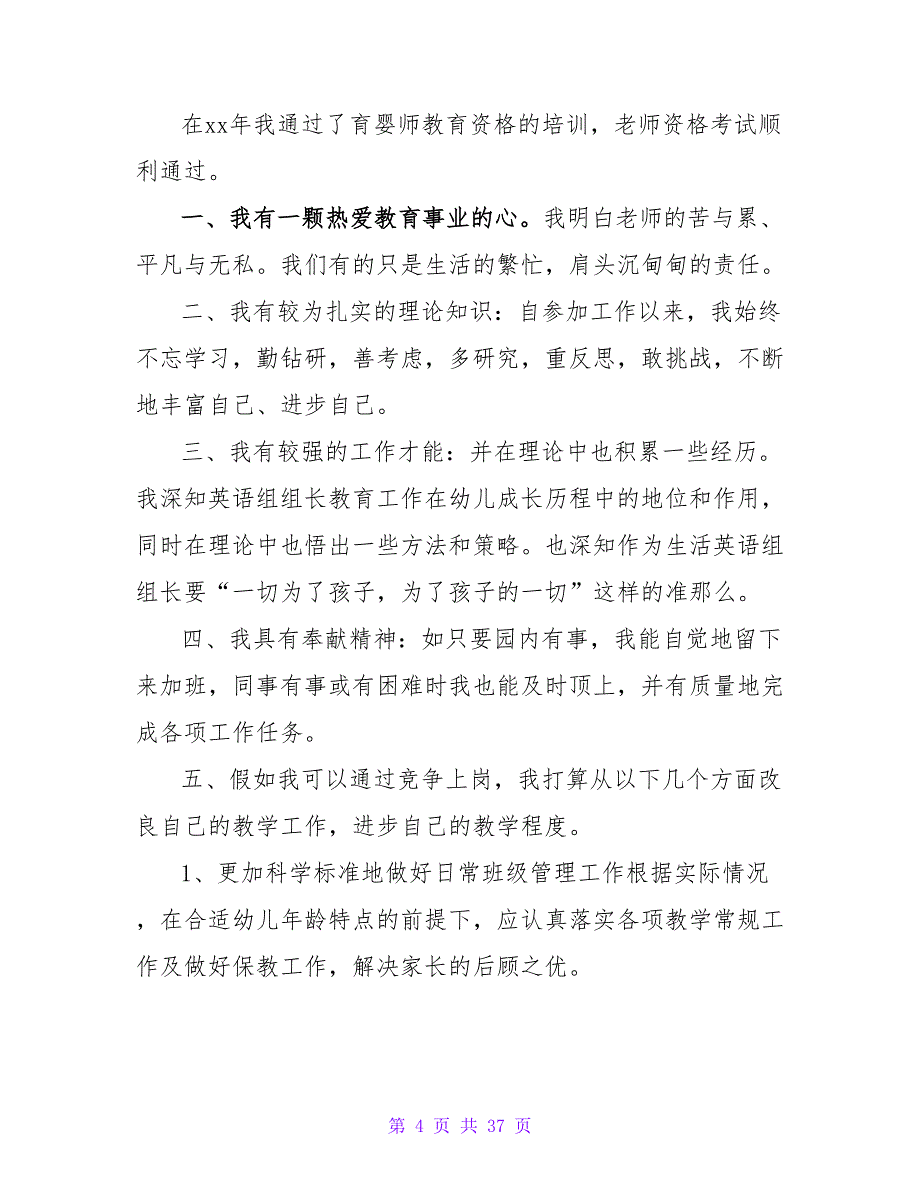 在xx年我通过了育婴师教育资格的培训，老师资格考试顺
利通过。
一、我有一颗热爱教育事业的心。我明白老师的苦与累、
平凡与无私。我们有的只是生活的繁忙，肩头沉甸甸的责任。
二、我有较为扎实的理论知识：自参加工作以来，我始终
不忘学习，勤钻研，善考虑，多研究，重反思，敢挑战，不断
地丰富自己、进步自己。
三、我有较强的工作才能：并在理论中也积累一些经历。
我深知英语组组长教育工作在幼儿成长历程中的地位和作用，
同时在理论中也悟出一些方法和策略。也深知作为生活英语组
组长要“一切为了孩子，为了孩子的一切”这样的准那么。
四、我具有奉献精神：如只要园内有事，我能自觉地留下
来加班，同事有事或有困难时我也能及时顶上，并有质量地完
成各项工作任务。
五、假如我可以通过竞争上岗，我打算从以下几个方面改
良自己的教学工作，进步自己的教学程度。
1、更加科学标准地做好日常班级管理工作根据实际情况
，在合适幼儿年龄特点的前提下，应认真落实各项教学常规工
作及做好保教工作，解决家长的后顾之优。
第 4 页 共 37 页